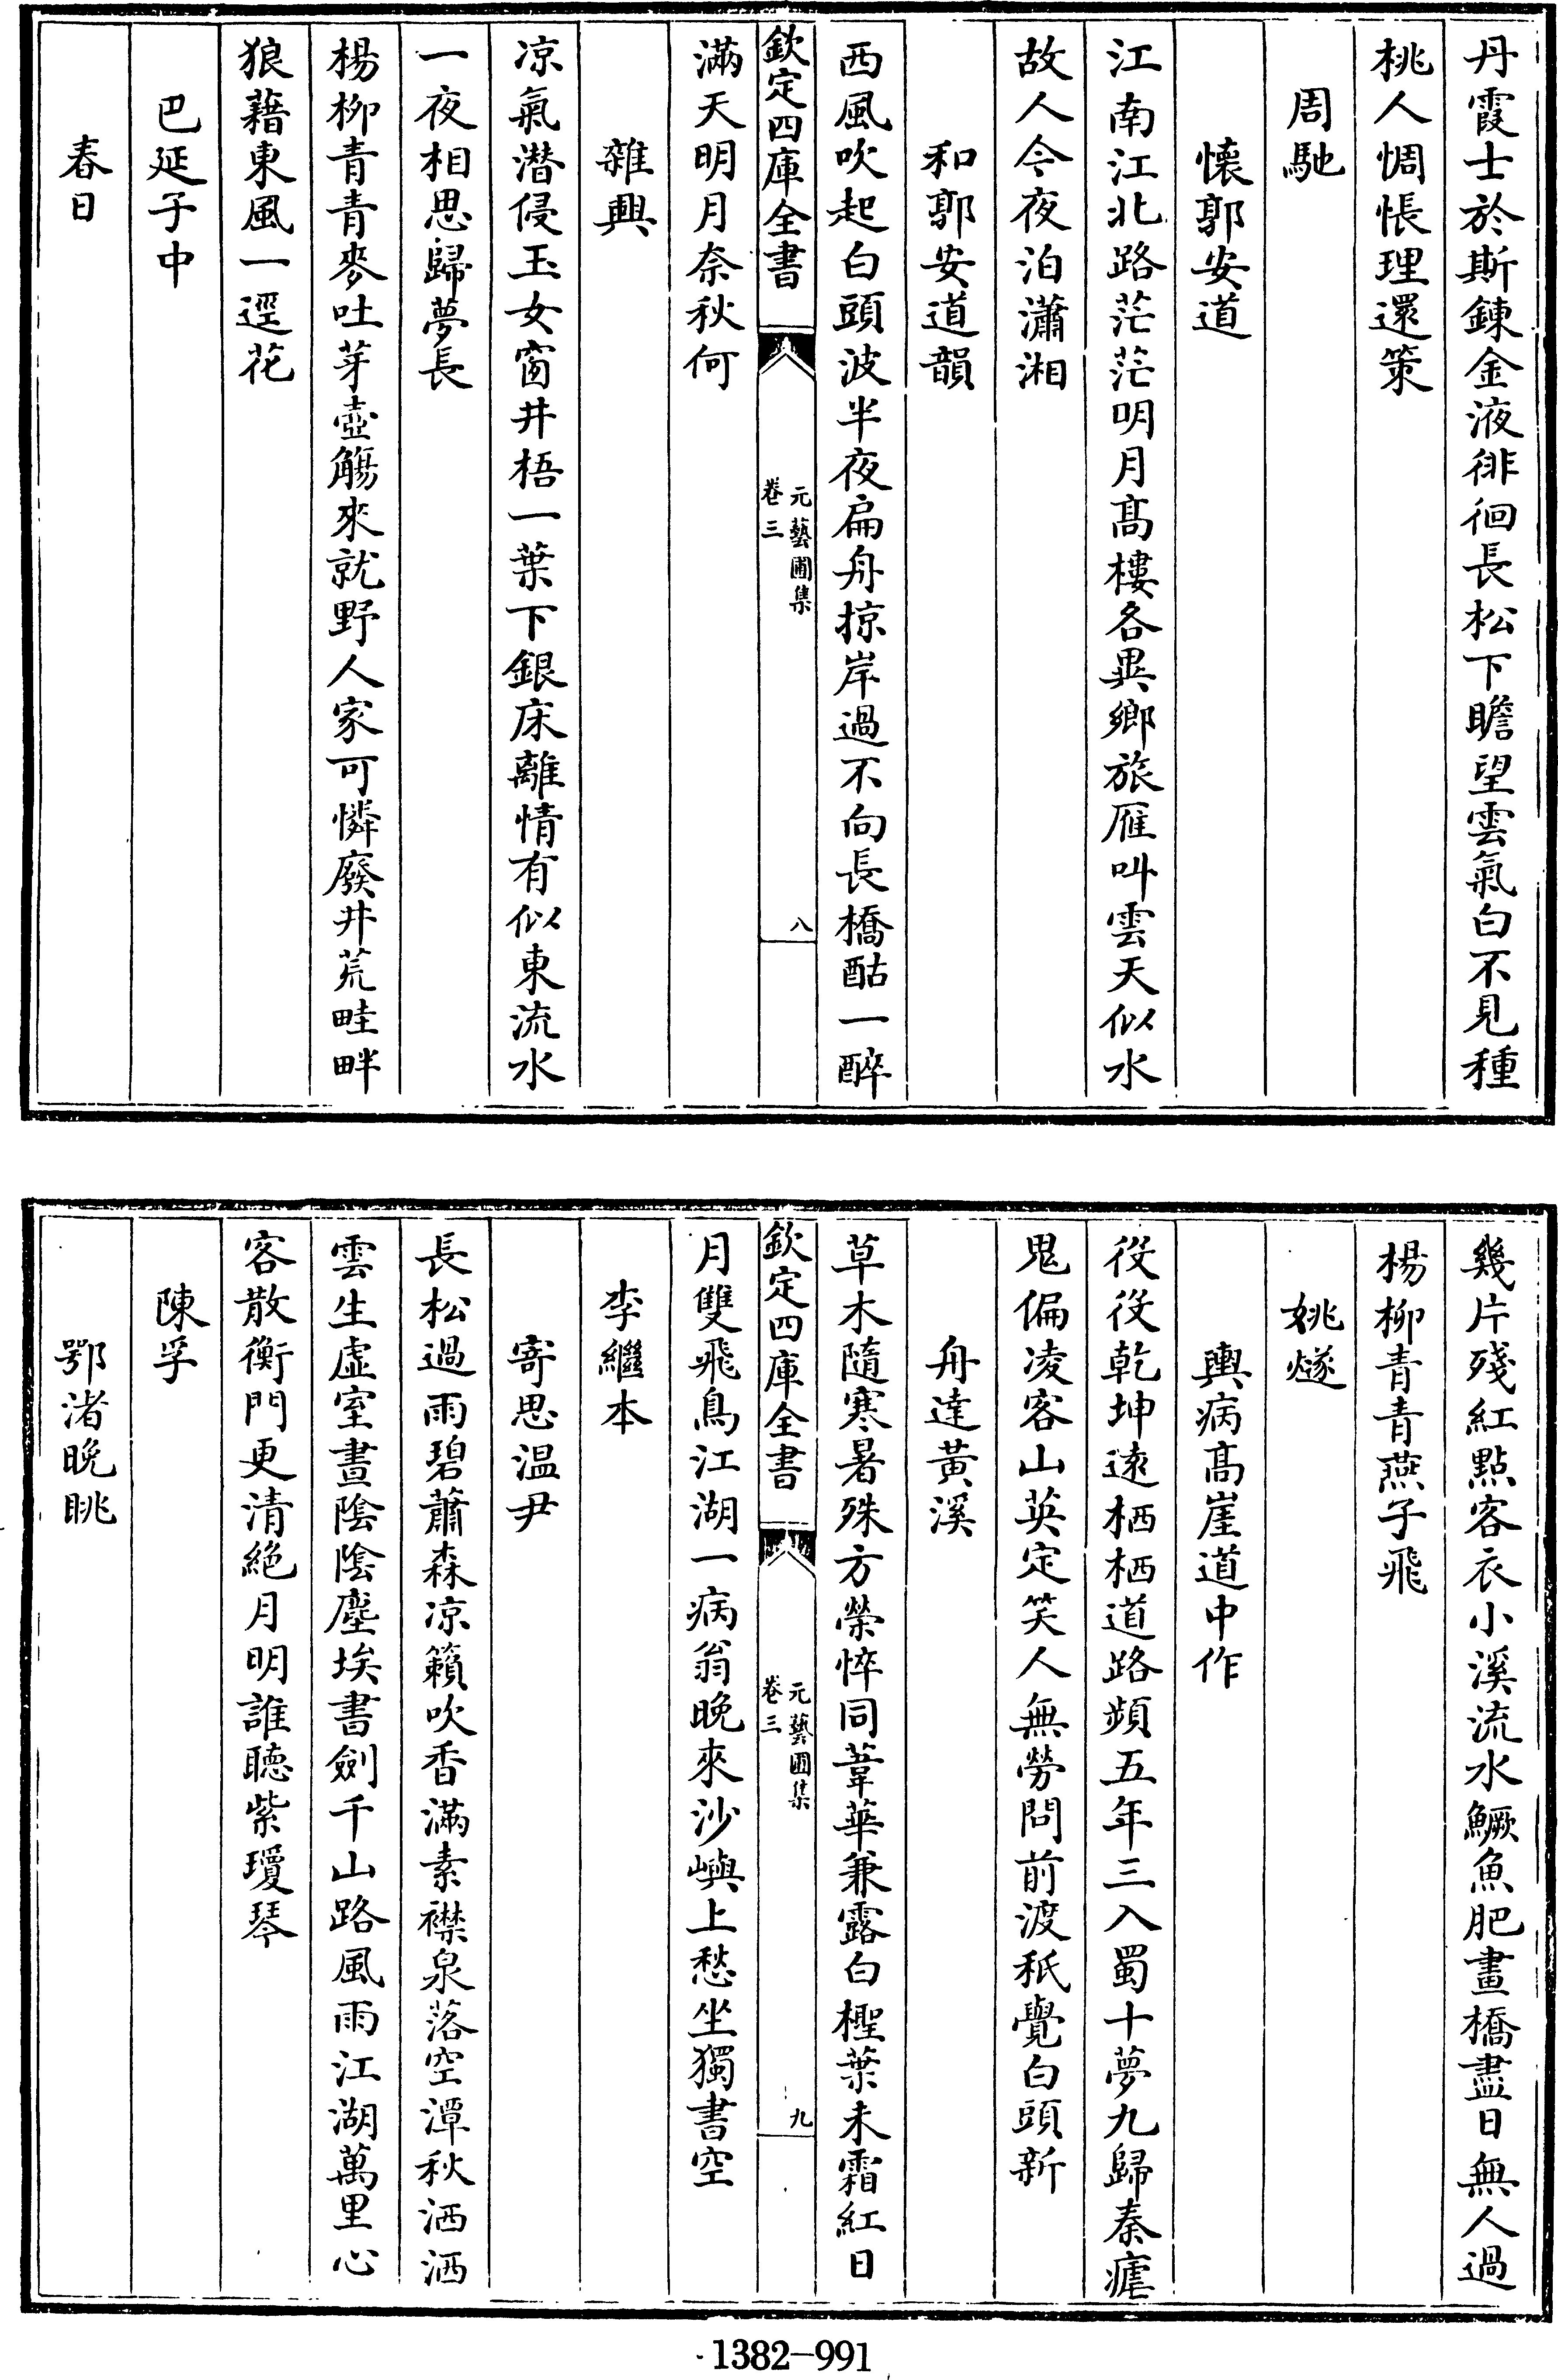 丹霞士於斯鍊金液徘徊長松下瞻望雲氣白不見種
桃人惆悵理還策
周馳
懷郭安道
江南江北路茫茫明月髙樓各異鄉旅雁叫雲天似水
故人今夜泊瀟湘
和郭安道韻
西風吹起白頭波半夜扁舟掠岸過不向長橋酤一醉
欽定四庫全書
元藝圃集
卷三
八
滿天明月奈秋何
雜興
凉氣潜侵玉女窗井梧一葉下銀床離情有似東流水
一夜相思歸夢長
楊柳青青麥吐芽壺觴來就野人家可憐廢井荒畦畔
狼藉東風一逕花
巴延子中
春日
幾片殘紅點客衣小溪流水鱖魚肥畫橋盡日無人過
楊柳青青燕子飛
姚燧
輿病髙崖道中作
役役乾坤逺栖栖道路頻五年三入蜀十夢九歸秦瘧
鬼偏凌客山英定笑人無勞問前渡秖覺白頭新
舟達黃溪
草木隨寒暑殊方榮悴同葦華兼露白檉葉未霜紅日
欽定四庫全書
元藝圃集
卷三
九
月雙飛鳥江湖一病翁晚來沙嶼上愁坐獨書空
李繼本
寄思温尹
長松過雨碧蕭森凉籟吹香滿素襟泉落空潭秋洒洒
雲生虛室晝陰陰塵埃書劍千山路風雨江湖萬里心
客散衡門更清絕月明誰聽紫瓊琴
陳孚
鄂渚晚眺
1382-991